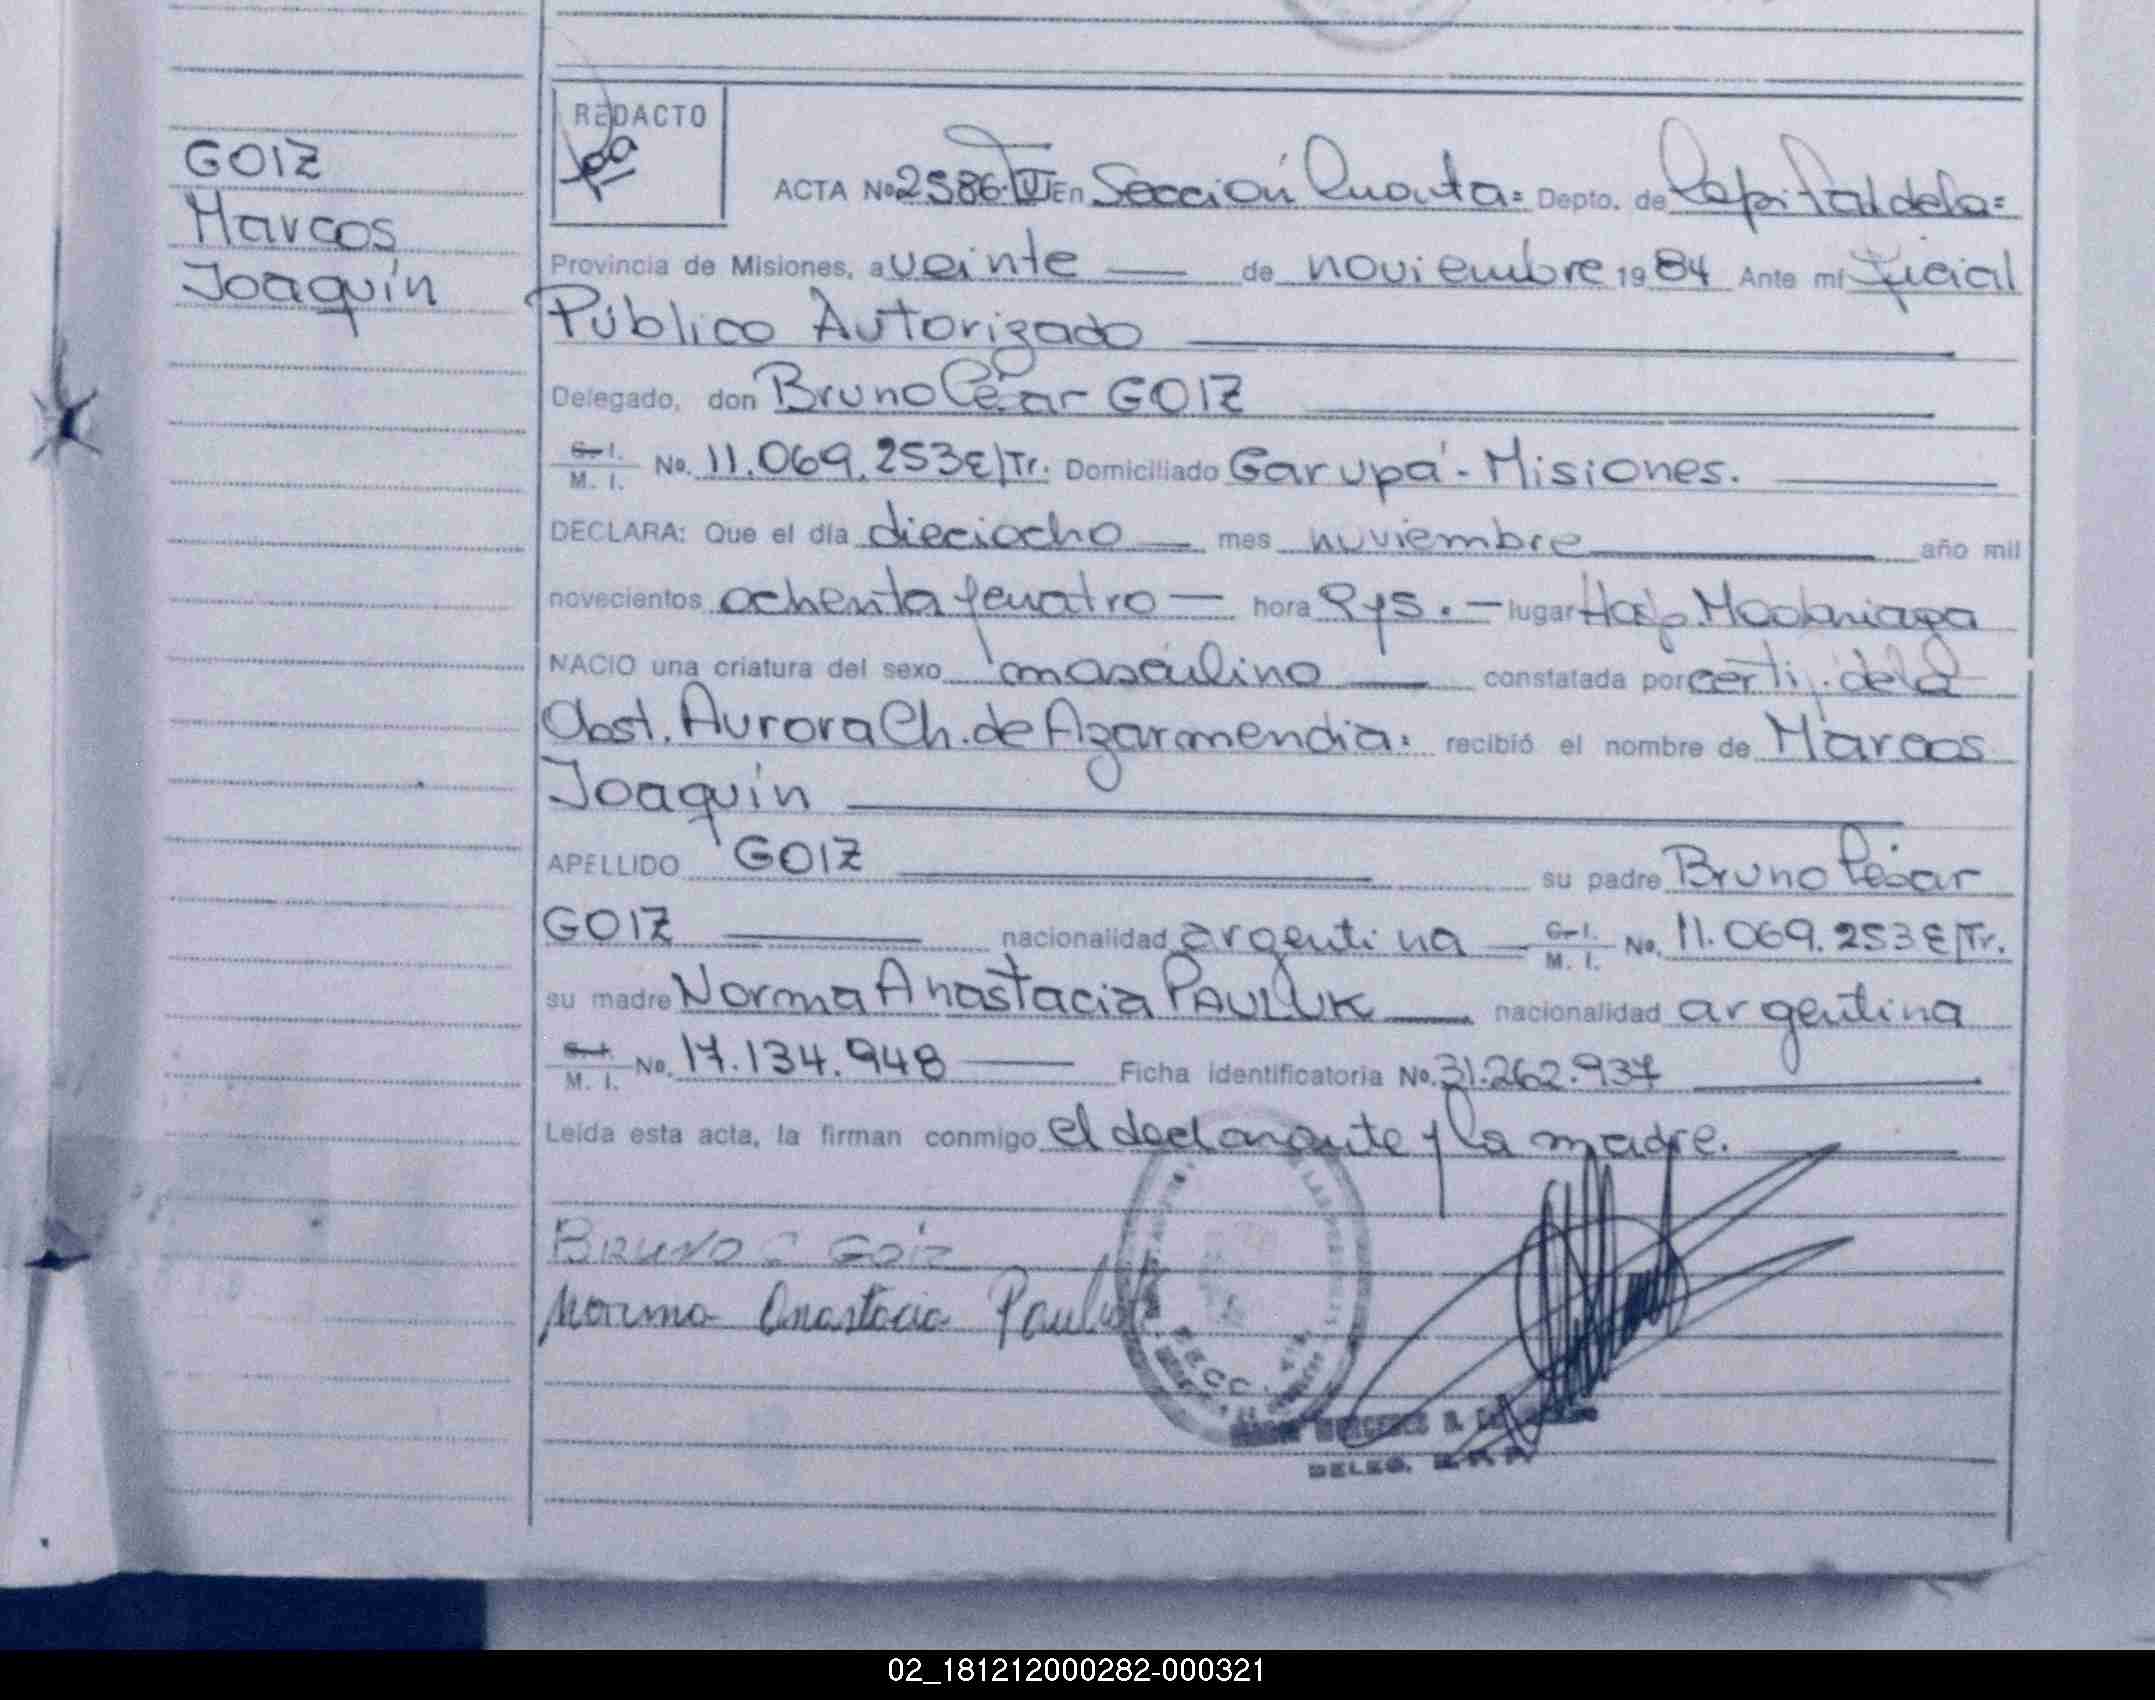 GOIZ
Marcos
Joaquín
REDACTO
ACTA No 2586. VI En Sección Cuarta= Depto. de Capital dela=
Provincia de Misiones, a veinte de noviembre 1984 Ante mí Oficial
Público Autorizado
Delegado, don Bruno César GOIZ
C. I. M. I. No. 11.069.253 E/Tr. Domiciliado Garupá - Misiones.
DECLARA: Que el día dieciocho mes noviembre año mil
novecientos ochenta y cuatro hora 9 y 5. lugar Hosp. Madariaga
NACIO una criatura del sexo masculino constatada por certi. de la
Obst. Aurora Ch. de Azarmendia: recibió el nombre de Marcos
Joaquín
APELLIDO GOIZ su padre Bruno César
GOIZ nacionalidad argentina C. I. M. I. No. 11.069.253 E/Tr.
su madre Norma Anastacia PAULUK nacionalidad argentina
M. I. No. 17.134.948 Ficha identificatoria No. 31.262.937
Leída esta acta, la firman conmigo el declarante y la madre.
BRUNO C GOIZ
Norma Anastacia Pauluk
DELEG.
02_181212000282-000321